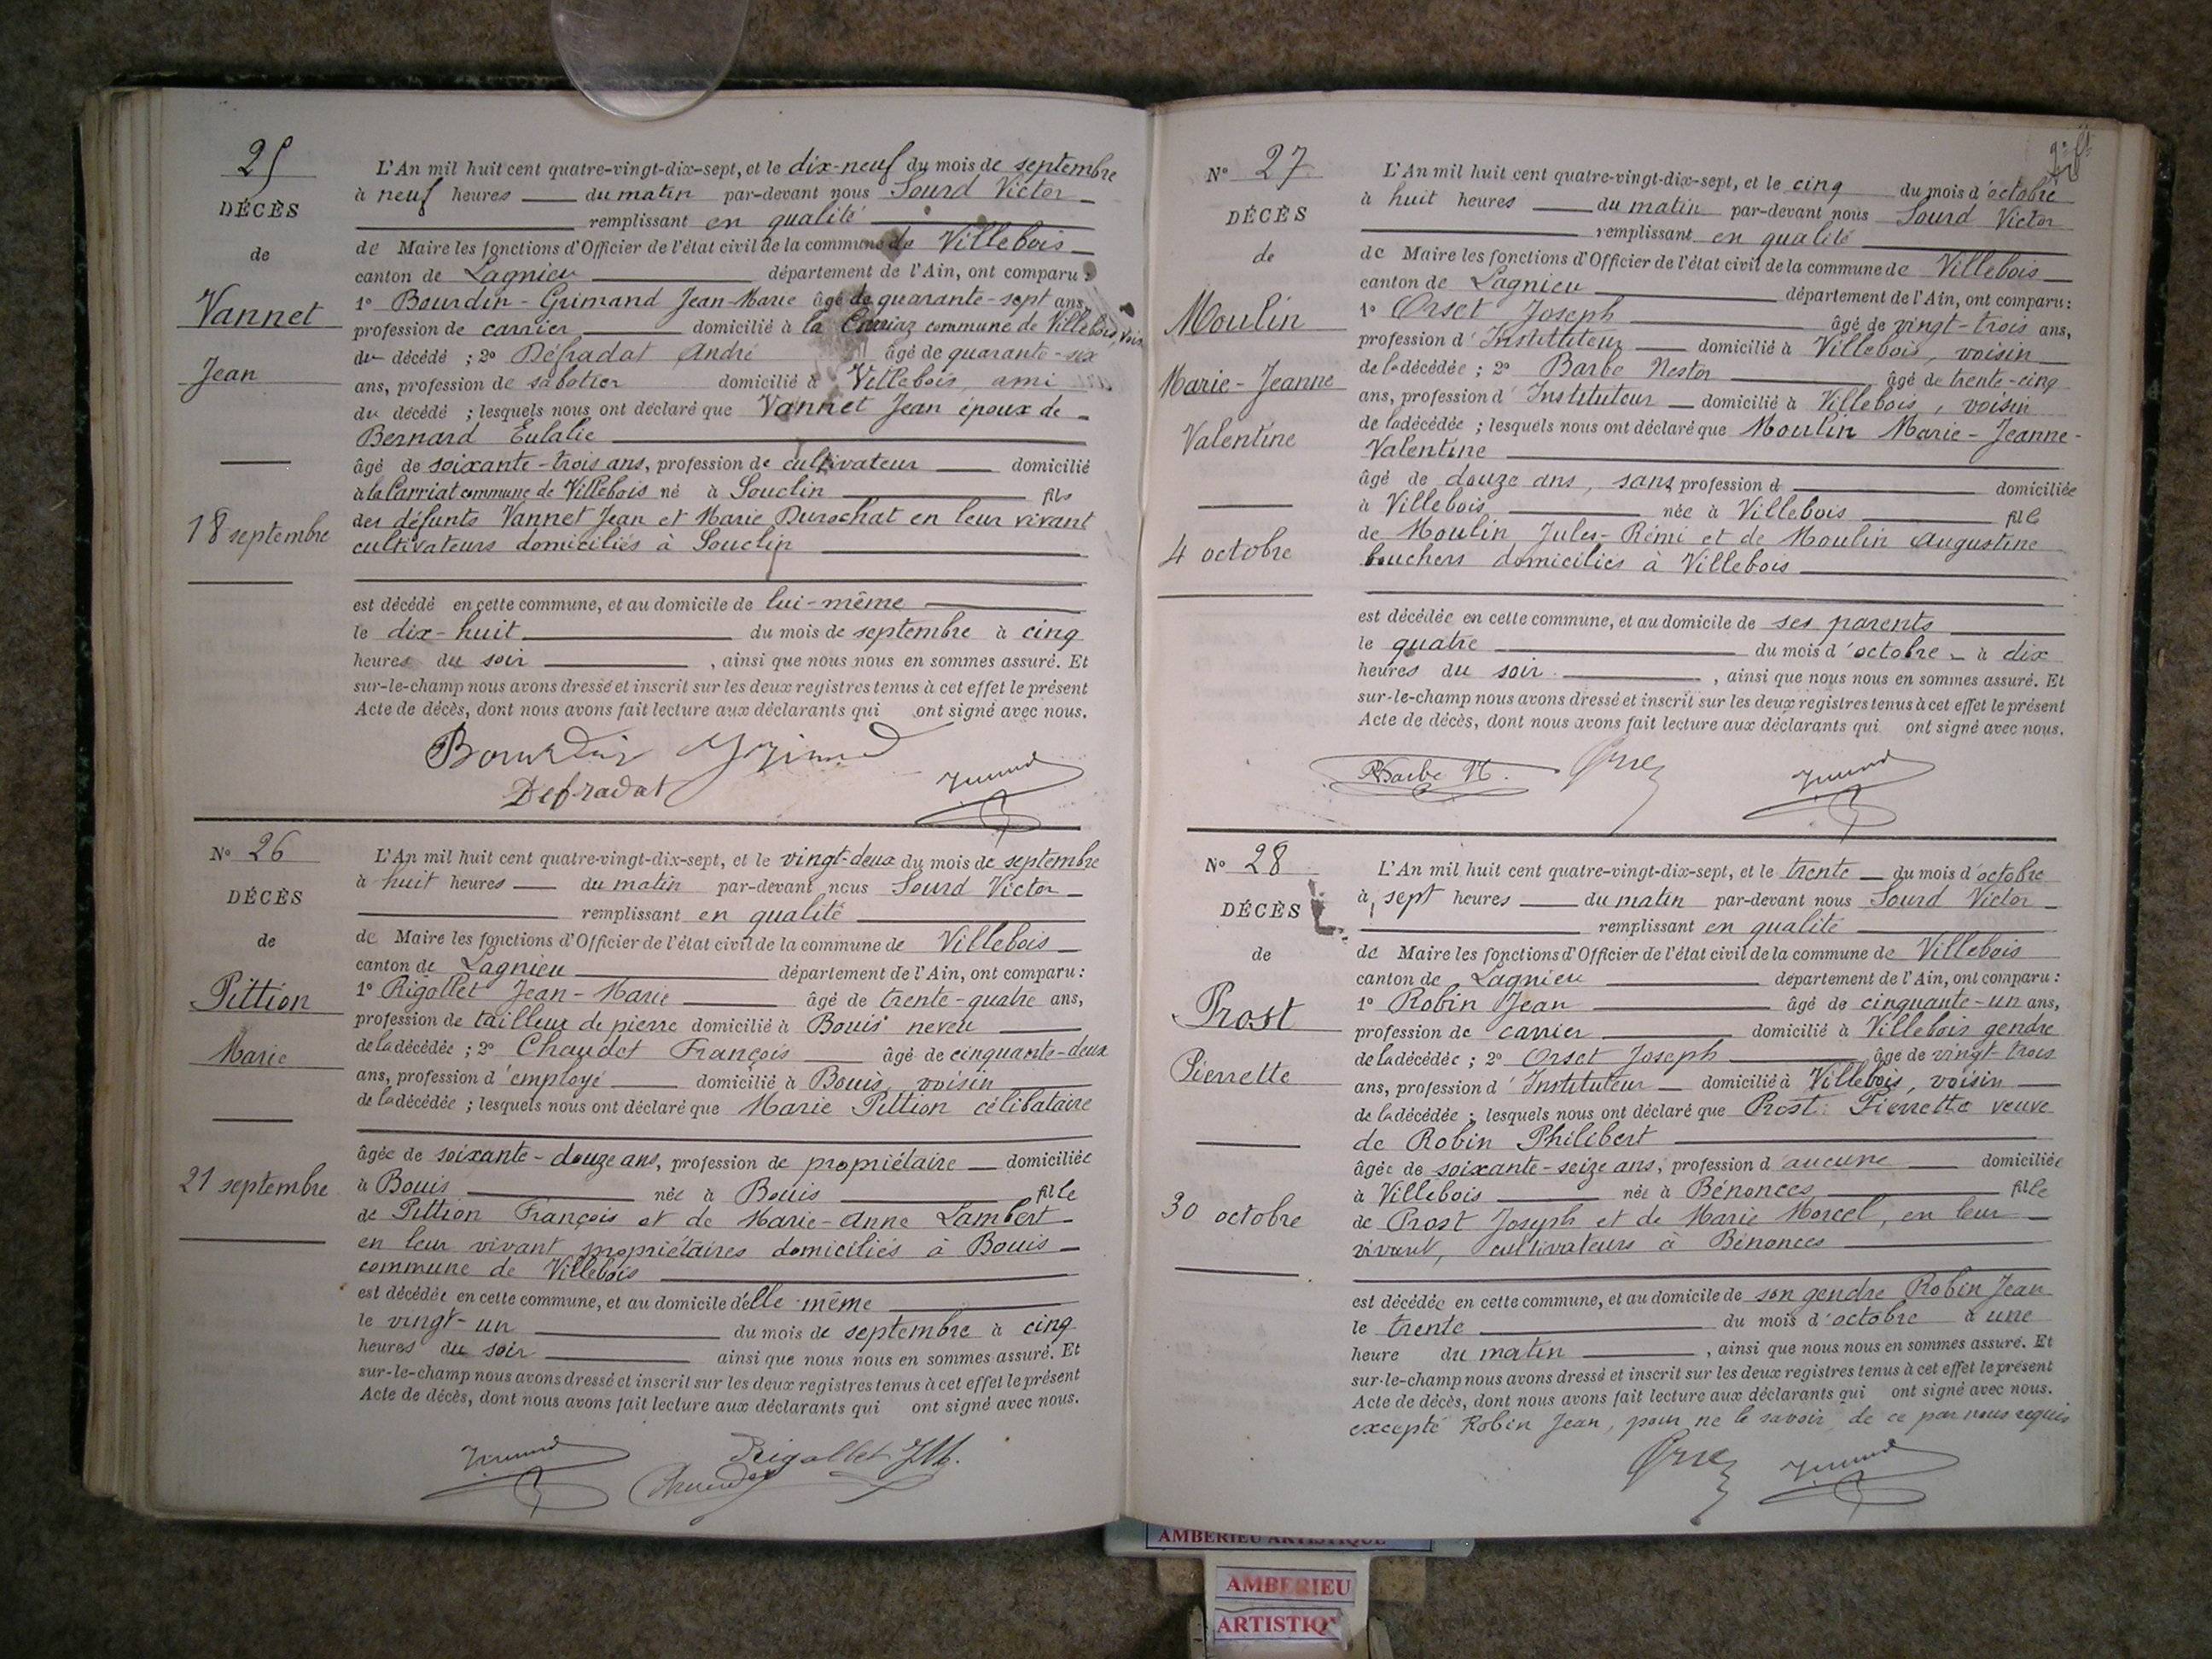 25
DÉCÈS
de
Vannet
Jean
18 septembre
L'An mil huit cent quatre-vingt-dix-sept, et le dix-neuf du mois de septembre
à neuf heures du matin par-devant nous Sourd Victor
remplissant en qualité
de Maire les fonctions d'Officier de l'état civil de la commune de Villebois
canton de Lagnieu département de l'Ain, ont comparu :
1° Bourdin-Grimand Jean-Marie âgé de quarante-sept ans,
profession de carrier domicilié à la commune de Villebois, voisin
du décédé ; 2° Défradat André âgé de quarante-six
ans, profession de sabotier domicilié à Villebois, ami
du décédé ; lesquels nous ont déclaré que Vannet Jean époux de
Bernard Eulalie
âgé de soixante-trois ans, profession de cultivateur domicilié
à la Carriat commune de Villebois né à Souclin fils
des défunts Vannet Jean et Marie Durochat en leur vivant
cultivateurs domiciliés à Souclin
est décédé en cette commune, et au domicile de lui-même
le dix-huit du mois de septembre à cinq
heures du soir , ainsi que nous nous en sommes assuré. Et
sur-le-champ nous avons dressé et inscrit sur les deux registres tenus à cet effet le présent
Acte de décès, dont nous avons fait lecture aux déclarants qui ont signé avec nous.
Bourdin Grimand
Defradat
N° 26
DÉCÈS
de
Pittion
Marie
21 septembre
L'An mil huit cent quatre-vingt-dix-sept, et le vingt-deux du mois de septembre
à huit heures du matin par-devant nous Sourd Victor
remplissant en qualité
de Maire les fonctions d'Officier de l'état civil de la commune de Villebois
canton de Lagnieu département de l'Ain, ont comparu :
1° Rigollet Jean-Marie âgé de trente-quatre ans,
profession de tailleur de pierre domicilié à Bouis neveu
de la décédée ; 2° Chaudet François âgé de cinquante-deux
ans, profession d'employé domicilié à Bouis, voisin
de la décédée ; lesquels nous ont déclaré que Marie Pittion célibataire
âgée de soixante-douze ans, profession de propriétaire domiciliée
à Bouis née à Bouis fille
de Pittion François et de Marie-Anne Lambert
en leur vivant propriétaires domiciliés à Bouis
commune de Villebois
est décédée en cette commune, et au domicile d'elle-même
le vingt-un du mois de septembre à cinq
heures du soir ainsi que nous nous en sommes assuré. Et
sur-le-champ nous avons dressé et inscrit sur les deux registres tenus à cet effet le présent
Acte de décès, dont nous avons fait lecture aux déclarants qui ont signé avec nous.
Rigollet JM.
N° 27
DÉCÈS
de
Moulin
Marie-Jeanne
Valentine
4 octobre
L'An mil huit cent quatre-vingt-dix-sept, et le cinq du mois d'octobre
à huit heures du matin par-devant nous Sourd Victor
remplissant en qualité
de Maire les fonctions d'Officier de l'état civil de la commune de Villebois
canton de Lagnieu département de l'Ain, ont comparu :
1° Orset Joseph âgé de vingt-trois ans,
profession d'Instituteur domicilié à Villebois, voisin
de la décédée ; 2° Barbe Nestor âgé de trente-cinq
ans, profession d'Instituteur domicilié à Villebois, voisin
de la décédée ; lesquels nous ont déclaré que Moulin Marie-Jeanne-
Valentine
âgé de douze ans, sans profession d domiciliée
à Villebois née à Villebois fille
de Moulin Jules-Rémi et de Moulin Augustine
bouchers domiciliés à Villebois
est décédée en cette commune, et au domicile de ses parents
le quatre du mois d'octobre à dix
heures du soir , ainsi que nous nous en sommes assuré. Et
sur-le-champ nous avons dressé et inscrit sur les deux registres tenus à cet effet le présent
Acte de décès, dont nous avons fait lecture aux déclarants qui ont signé avec nous.
Barbe N. Orset
N° 28
DÉCÈS
de
Prost
Pierrette
30 octobre
L'An mil huit cent quatre-vingt-dix-sept, et le trente du mois d'octobre
à sept heures du matin par-devant nous Sourd Victor
remplissant en qualité
de Maire les fonctions d'Officier de l'état civil de la commune de Villebois
canton de Lagnieu département de l'Ain, ont comparu :
1° Robin Jean âgé de cinquante-un ans,
profession de carrier domicilié à Villebois gendre
de la décédée ; 2° Orset Joseph âgé de vingt-trois
ans, profession d'Instituteur domicilié à Villebois, voisin
de la décédée ; lesquels nous ont déclaré que Prost Pierrette veuve
de Robin Philibert
âgée de soixante-seize ans, profession d'aucune domiciliée
à Villebois née à Bénonces fille
de Prost Joseph et de Marie Morcel, en leur
vivant, cultivateurs à Bénonces
est décédée en cette commune, et au domicile de son gendre Robin Jean
le trente du mois d'octobre à une
heure du matin , ainsi que nous nous en sommes assuré. Et
sur-le-champ nous avons dressé et inscrit sur les deux registres tenus à cet effet le présent
Acte de décès, dont nous avons fait lecture aux déclarants qui ont signé avec nous.
excepté Robin Jean, pour ne le savoir de ce par nous requis
Orset
AMBERIEU ARTISTIQUE
AMBERIEU
ARTISTIQ